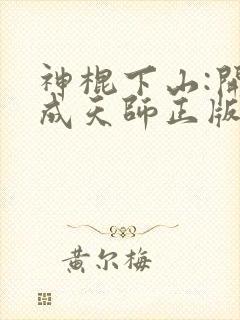 神棍下山:開
成天師正版
黄尔梅